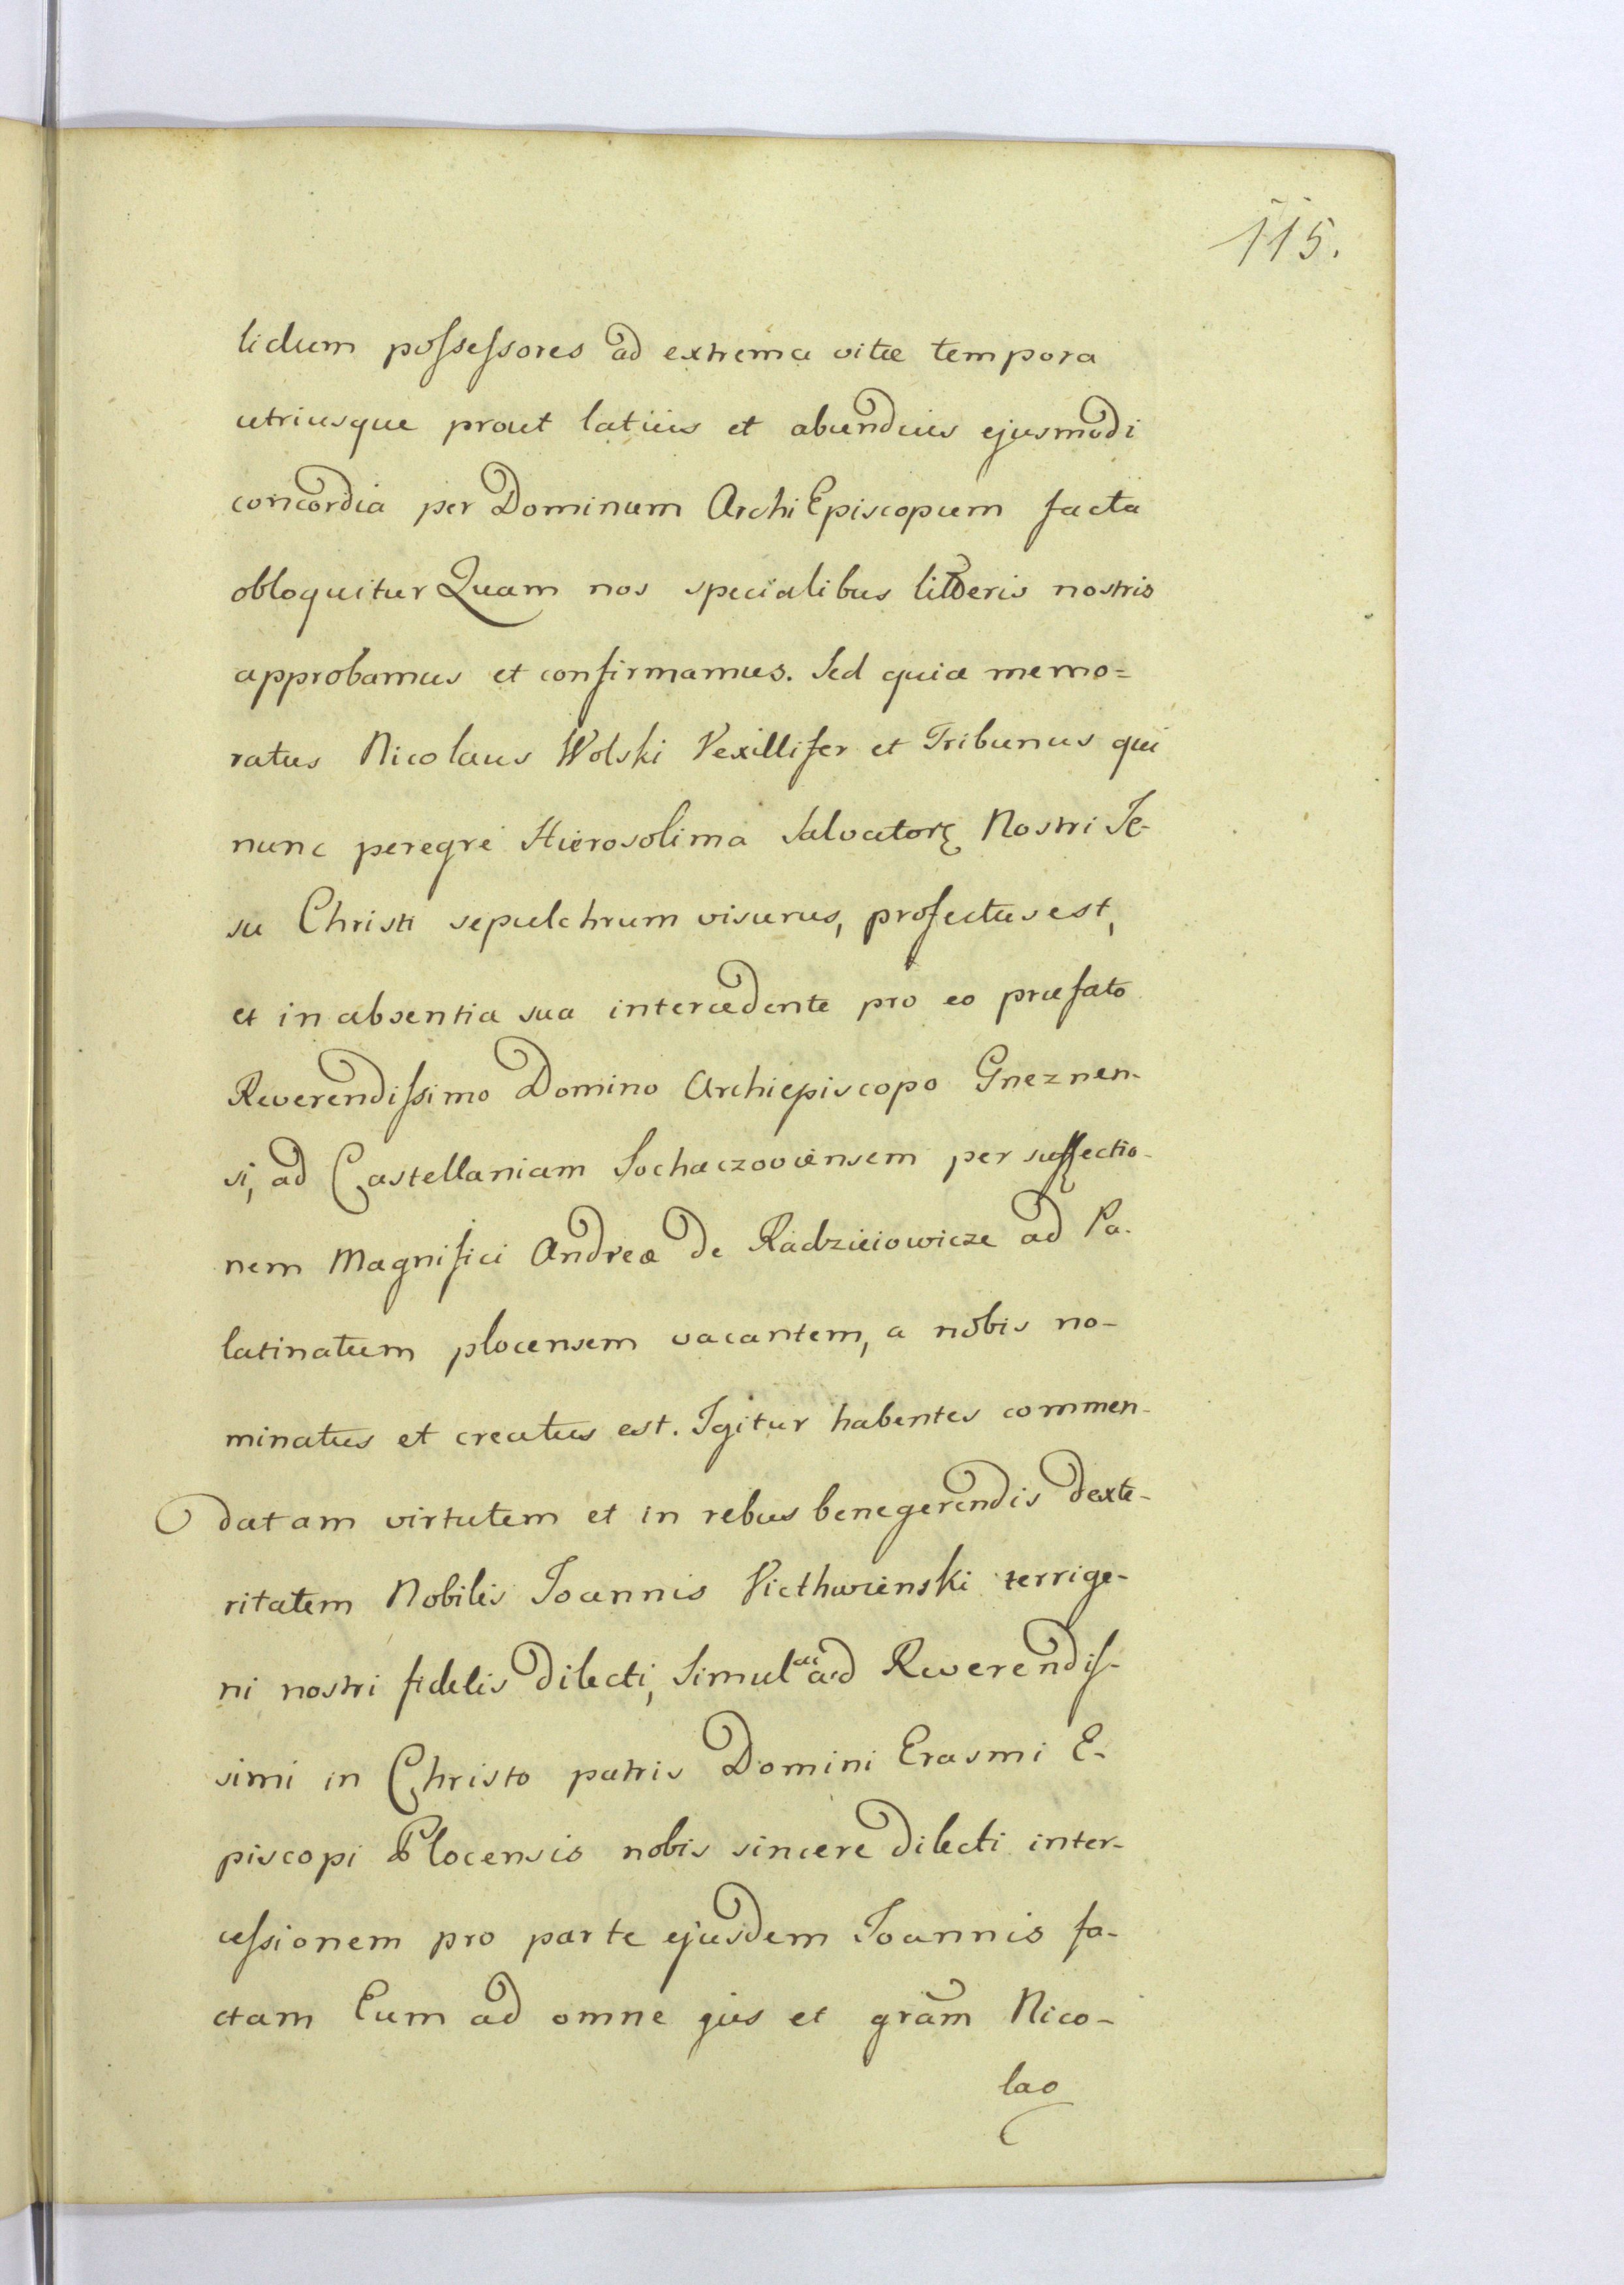 115.
lidum possessores ad extrema vitæ tempora
utriusque prout latius et abundius ejusmodi
concordia per Dominum ArchiEpiscopum facta
obloquitur Quam nos specialibus litteris nostris
approbamus et confirmamus. Sed quia memo=
ratus Nicolaus Wolski Vexillifer et Tribunus qui
nunc peregre Hierosolima Salvatorę Nostri Je-
su Christi sepulchrum visurus, profectus est,
et in absentia sua intercedente pro eo præfato
Reverendissimo Domino Archiepiscopo Gneznen-
si, ad Castellaniam Sochaczoviensem per suffectio-
nem Magnifici Andreæ de Radzieiowicze ad Pa-
latinatum plocensem vacantem, a nobis no-
minatus et creatus est. Igitur habentes commen-
datam virtutem et in rebus benegerendis dexte-
ritatem Nobilis Joannis Viethwienski terrige-
ni nostri fidelis dilecti, Simul ad Reverendis-
simi in Christo patris Domini Erasmi E-
piscopi Plocensis nobis sincere dilecti inter-
cessionem pro parte ejusdem Joannis fa-
ctam Eum ad omne jus et gram̃ Nico-
lao